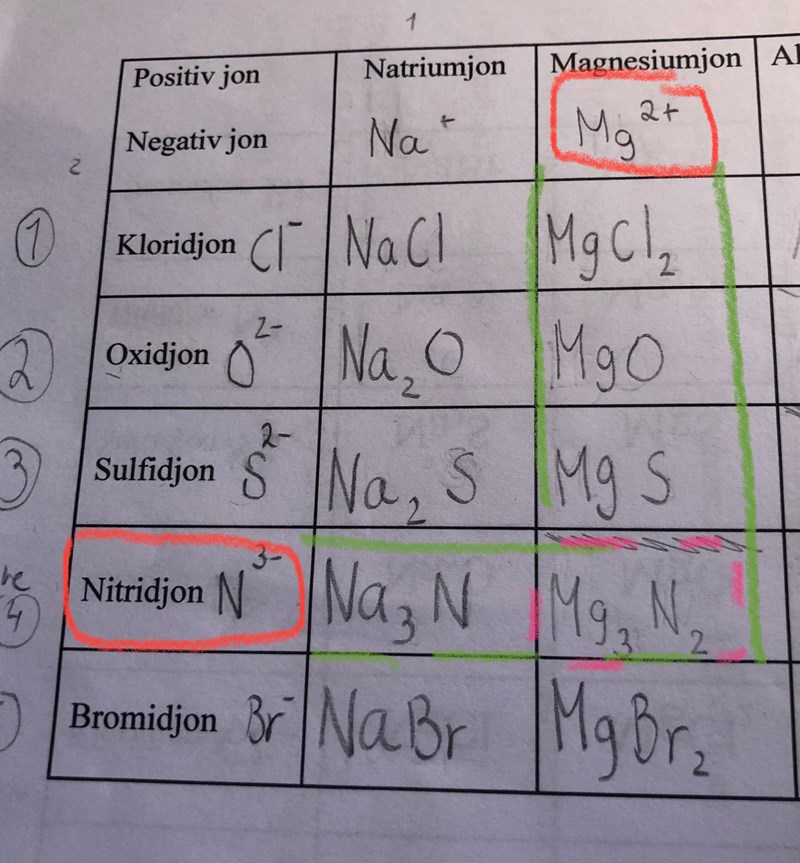 1
Positiv jon Natriumjon Magnesiumjon Al
Negativ jon Na⁺ Mg²⁺
2
1 Kloridjon Cl⁻ NaCl MgCl₂
2 Oxidjon O²⁻ Na₂O MgO
3 Sulfidjon S²⁻ Na₂S MgS
4 Nitridjon N³⁻ Na₃N Mg₃N₂
Bromidjon Br⁻ NaBr MgBr₂